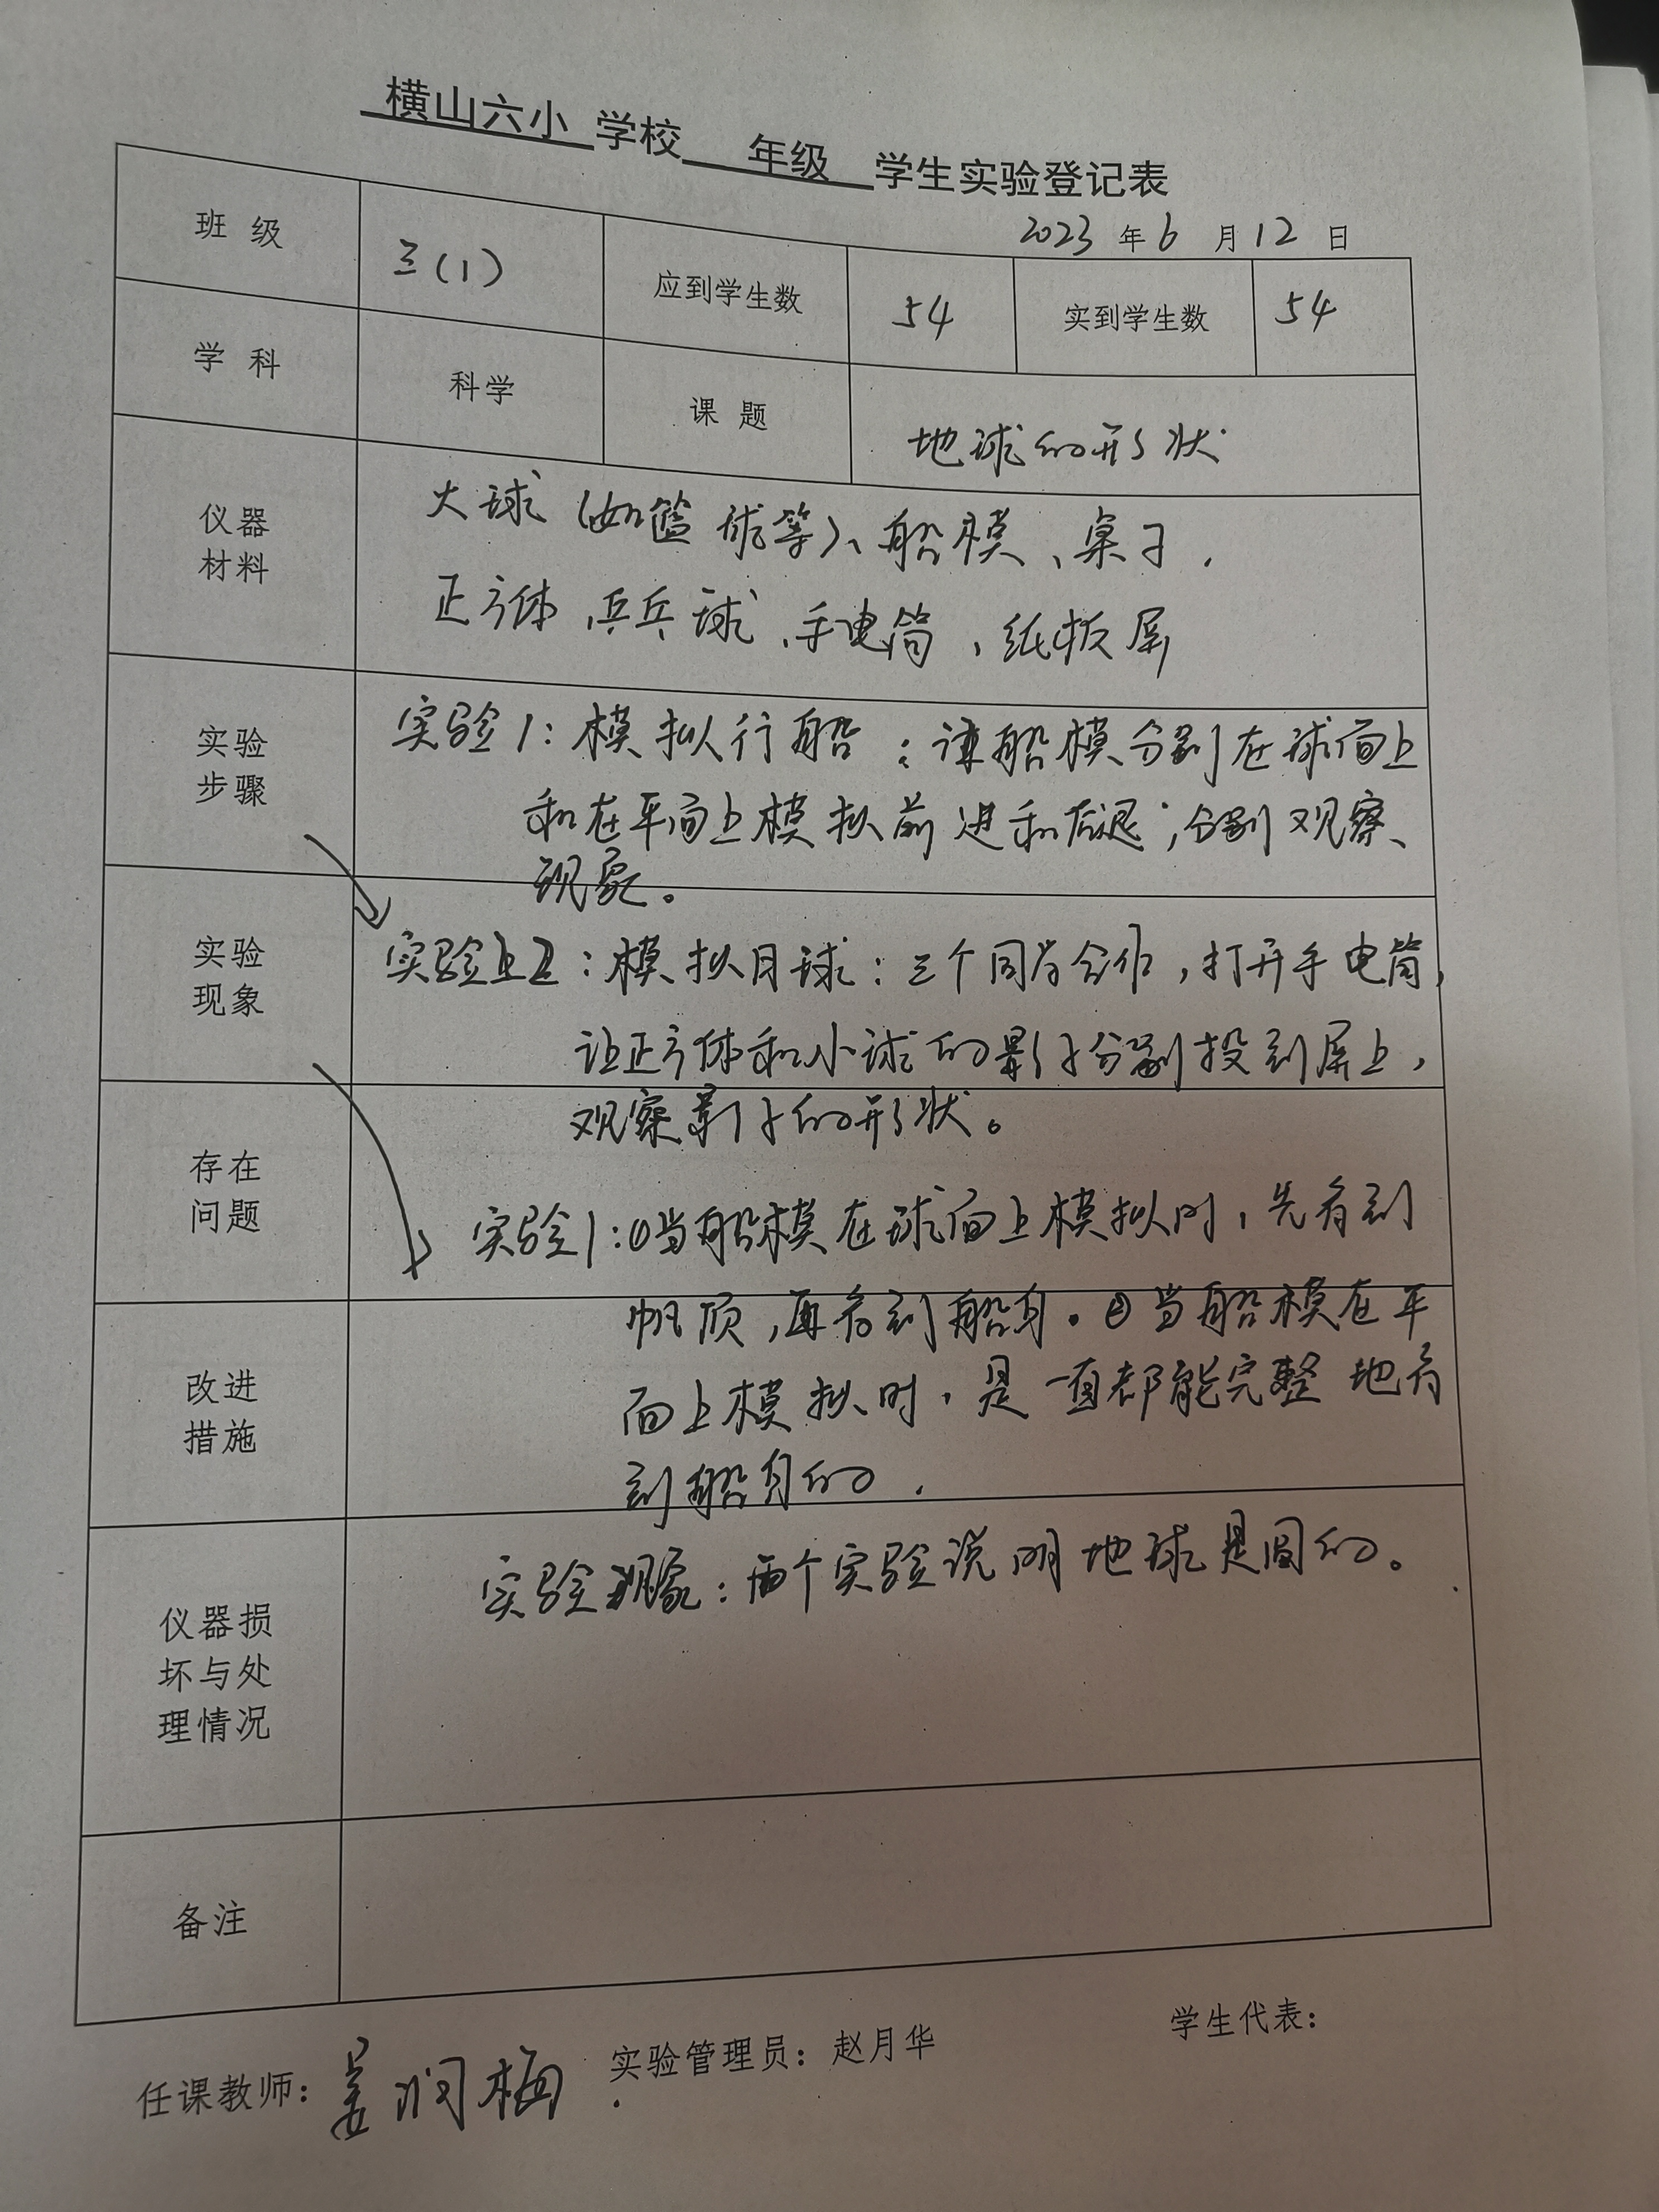 横山六小 学校 年级 学生实验登记表
2023 年 6 月 12 日
班 级 三(1) 应到学生数 54 实到学生数 54
学 科 科学 课 题 地球的形状
仪器
材料
大球(如篮球等)、船模、桌子,
正方体,乒乓球,手电筒,纸板屏
实验
步骤
实验1:模拟行船:让船模分别在球面上
和在平面上模拟前进和后退;分别观察
现象。
实验
现象
实验2:模拟月球:三个同学合作,打开手电筒,
让正方体和小球的影子分别投到屏上,
观察影子的形状。
存在
问题
实验1:①当船模在球面上模拟时,先看到
帆顶,再看到船身。②当船模在平
改进
措施
面上模拟时,是一直都能完整地看
到船身的.
实验现象:两个实验说明地球是圆的。
仪器损
坏与处
理情况
备注
任课教师:姜润梅 实验管理员:赵月华 学生代表: